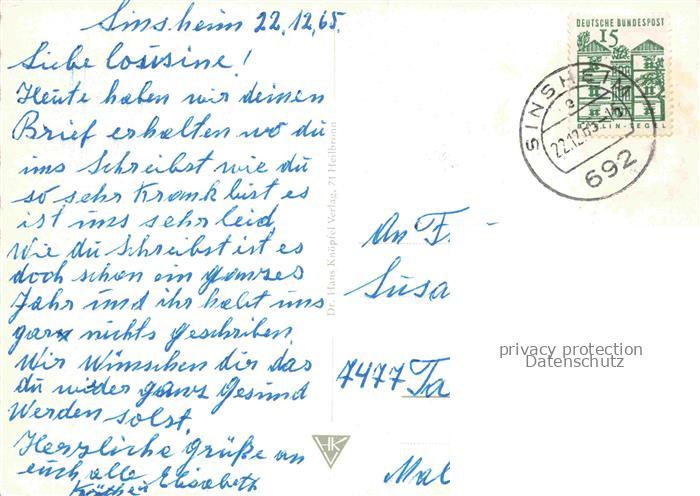 Sinsheim 22.12.65.
Liebe Cousine!
Heute haben wir deinen
Brief erhalten wo du
uns Schreibst wie du
so sehr Krank bist es
ist uns sehr leid.
Wie du Schreibst ist es
doch schon ein ganzes
Jahr und ihr habt uns
ganz nichts geschriben.
Wir Wünschen dir das
du wider ganz Gesund
Werden solst.
Herzliche Grüße an
euch alle
Elisabeth
Dr. Hans Knöpfel Verlag, 71 Heilbronn
HK
DEUTSCHE BUNDESPOST
15
BERLIN-TEGEL
SINSHEIM
e
22.12.65
692
An F
Susa
7477 Ta
Mal
privacy protection
Datenschutz